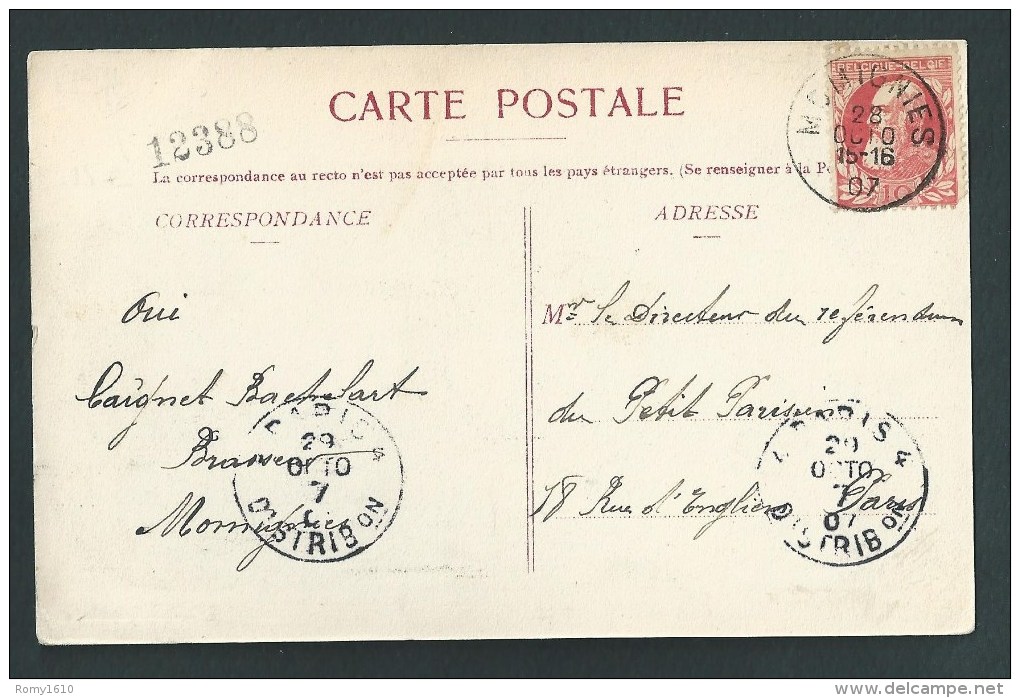 CARTE POSTALE
12388
La correspondance au recto n'est pas acceptée par tous les pays étrangers. (Se renseigner à la P
CORRESPONDANCE
ADRESSE
BELGIQUE-BELGIE
10
MOMIGNIES
28
OCTO
15-16
07
Oui
Caignet Bachelart
Brasseur
Momignies
Mr le Directeur du referendum
du Petit Parisien
18 Rue d'Enghien Paris
PARIS 4
29
OCTO
7
DISTRIBON
PARIS 4
29
OCTO
7
07
DISTRIBON
Romy1610
delcampe.net